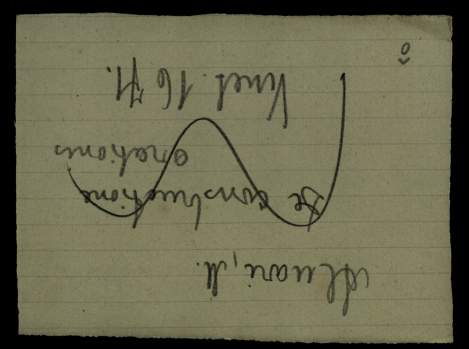 Alvari, M.
de constructione
orationis
Vinet. 1671.